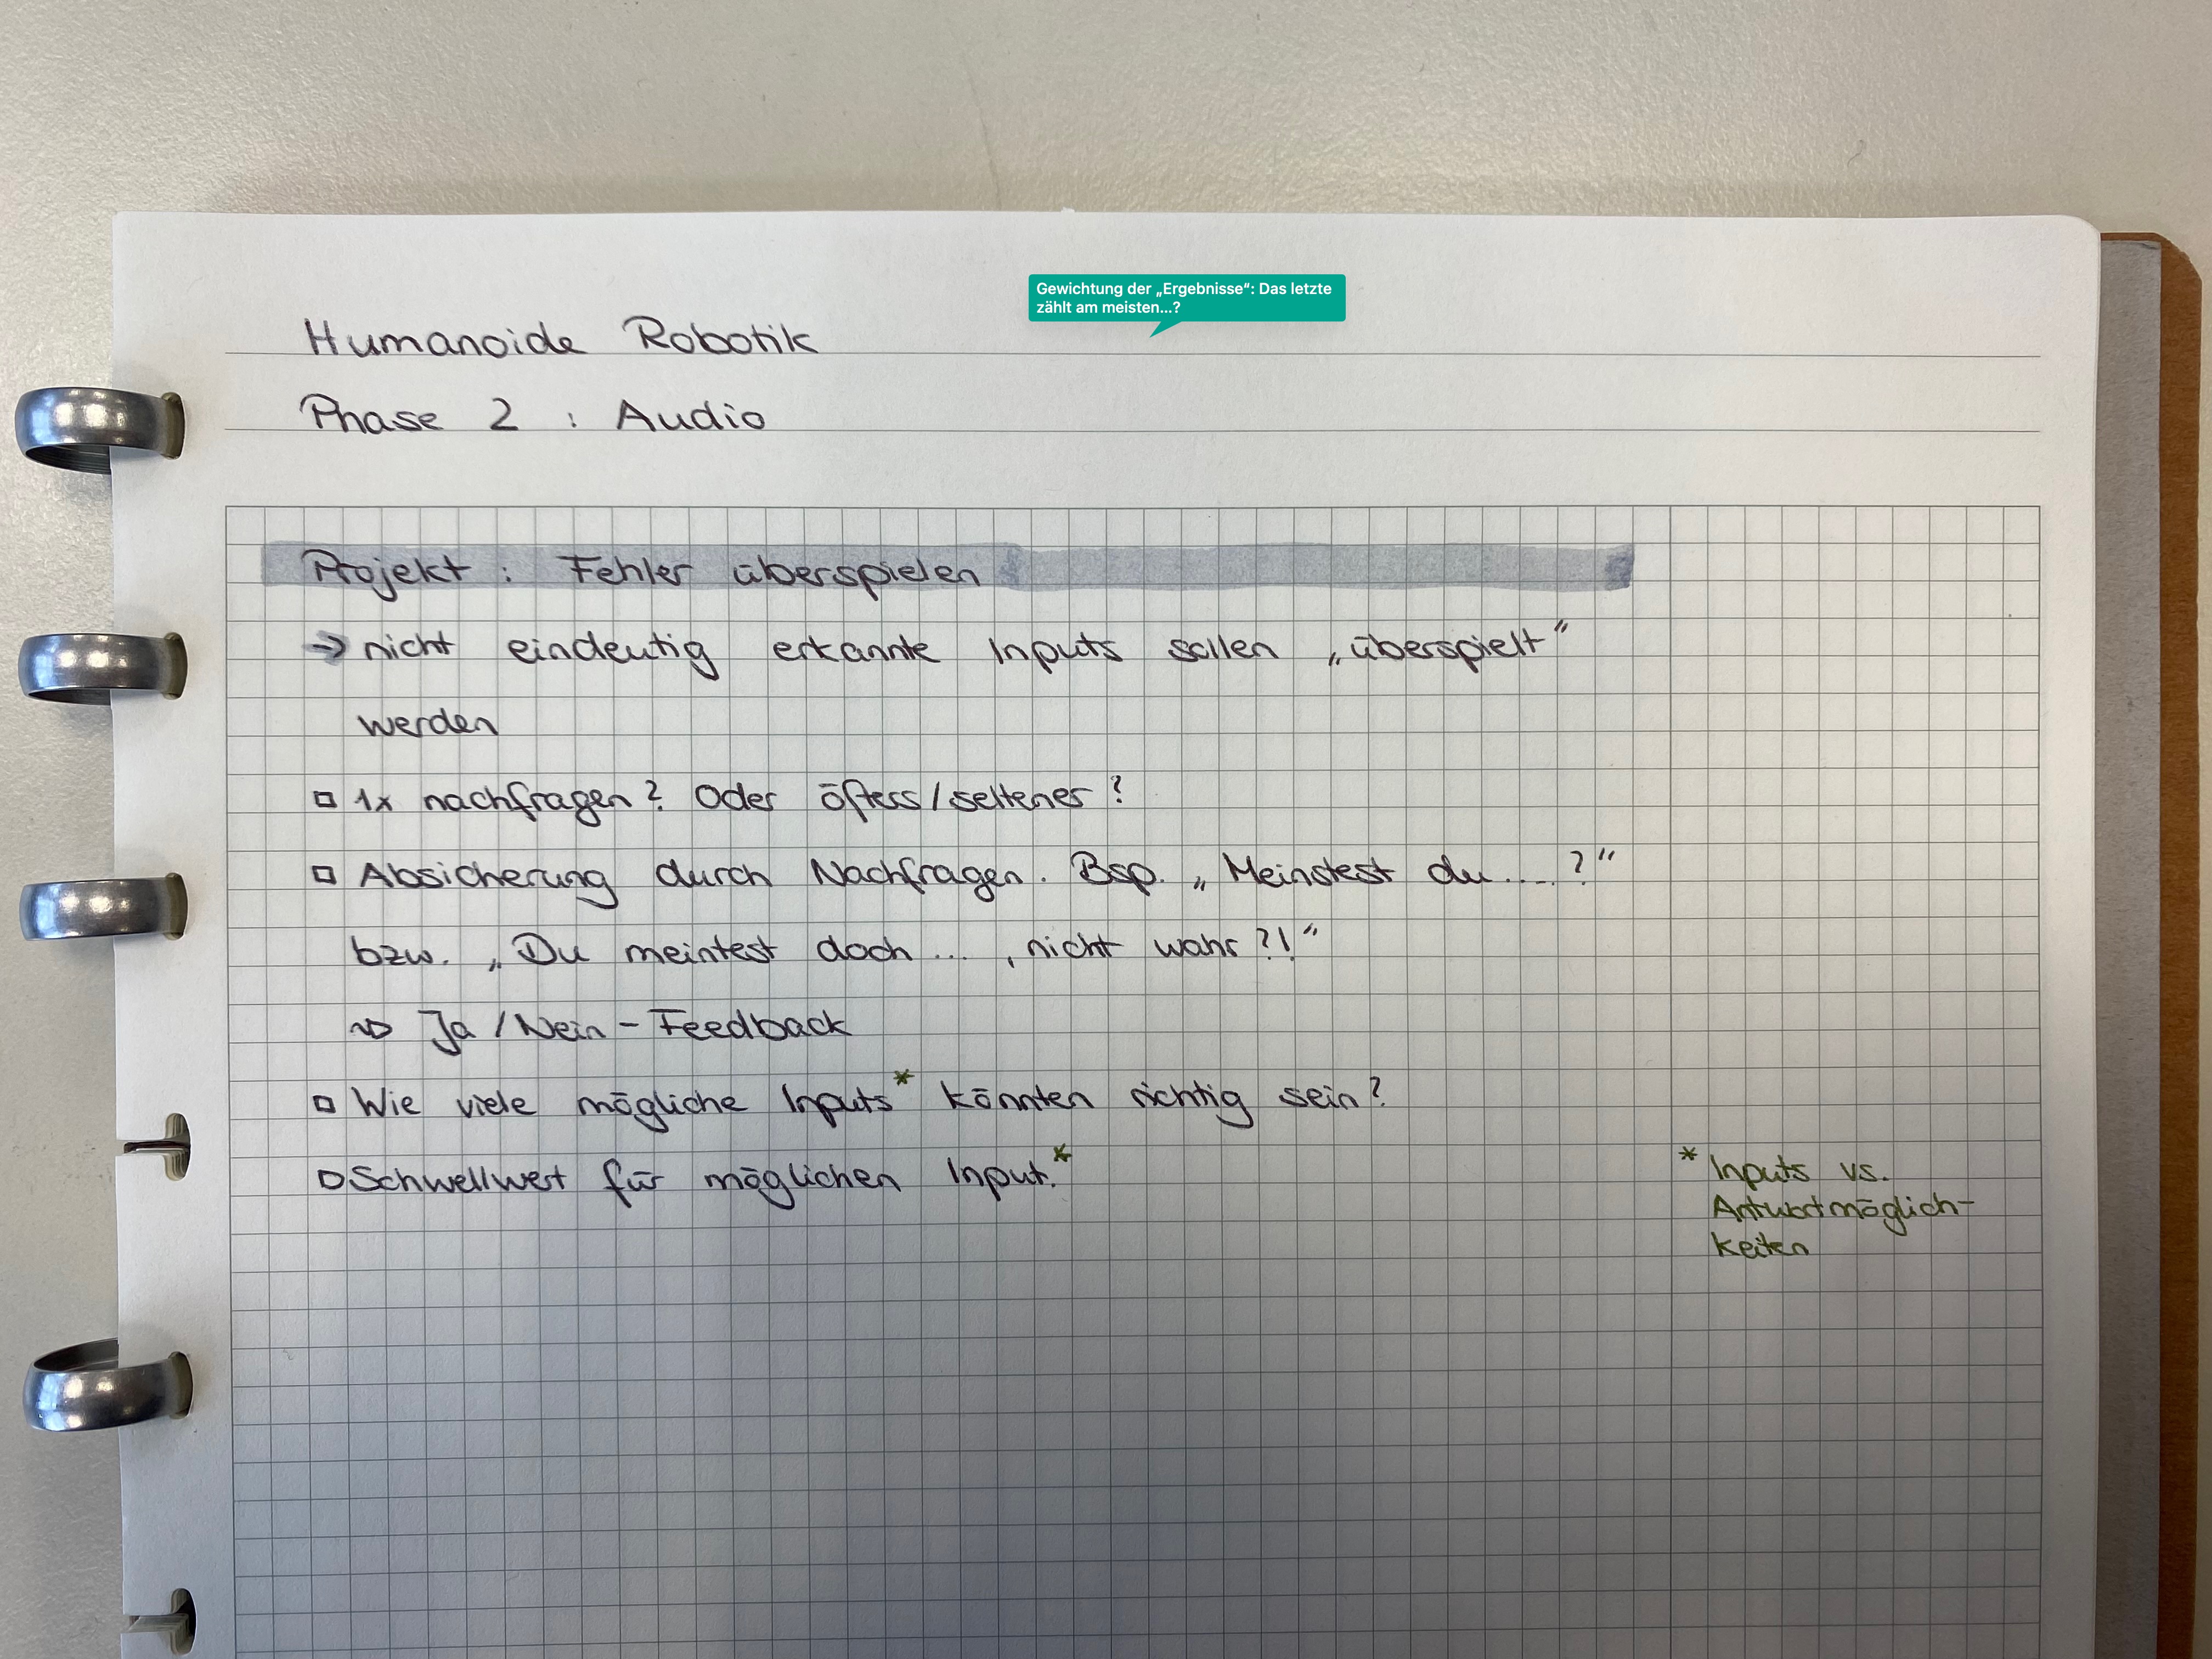 Gewichtung der „Ergebnisse“: Das letzte
zählt am meisten...?
Humanoide Robotik
Phase 2 : Audio
Projekt : Fehler überspielen
→ nicht eindeutig erkannte Inputs sollen „überspielt“
werden
□ 1x nachfragen? Oder öfters/seltener?
□ Absicherung durch Nachfragen. Bsp. „Meinstest du....?“
bzw. „Du meintest doch ... , nicht wahr?!“
⇝ Ja/Nein-Feedback
□ Wie viele mögliche Inputs* könnten richtig sein?
□ Schwellwert für möglichen Input.*
* Inputs vs.
Antwortmöglich-
keiten